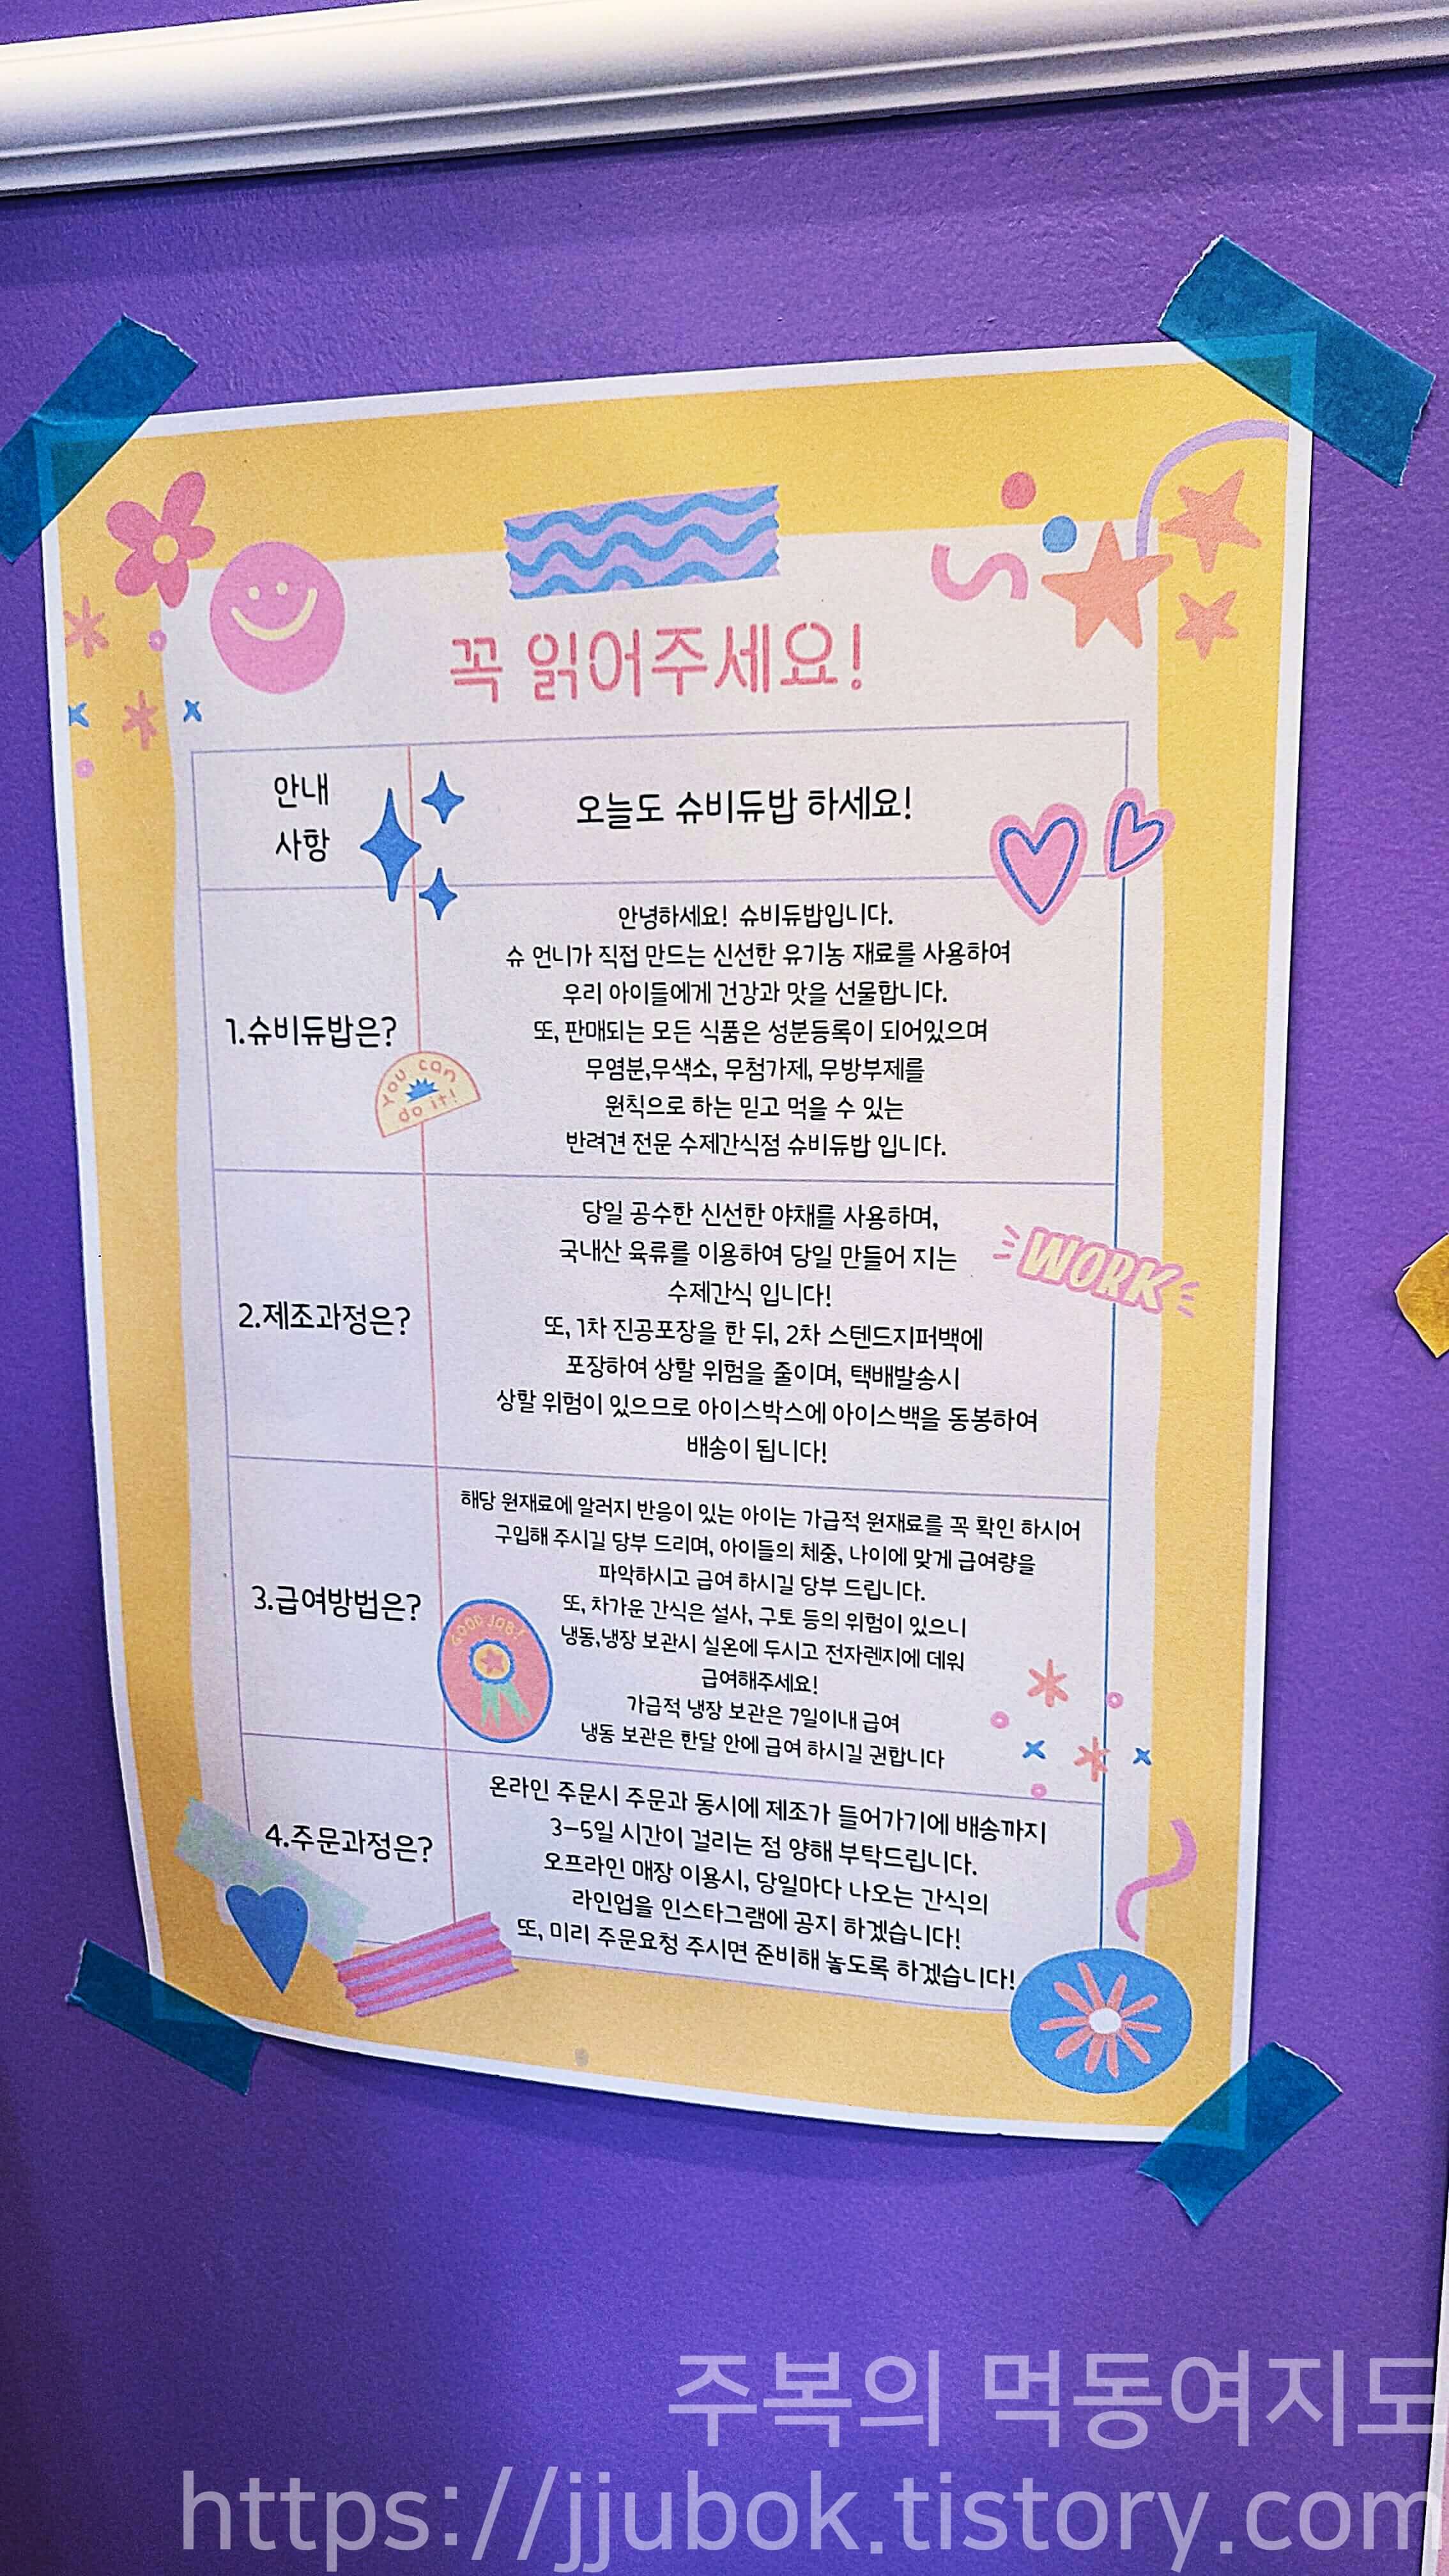 꼭 읽어주세요!
안내
사항
오늘도 슈비듀밥 하세요!
1.슈비듀밥은?
안녕하세요! 슈비듀밥입니다.
슈 언니가 직접 만드는 신선한 유기농 재료를 사용하여
우리 아이들에게 건강과 맛을 선물합니다.
또, 판매되는 모든 식품은 성분등록이 되어있으며
무염분,무색소, 무첨가제, 무방부제를
원칙으로 하는 믿고 먹을 수 있는
반려견 전문 수제간식점 슈비듀밥 입니다.
you can
do it!
2.제조과정은?
당일 공수한 신선한 야채를 사용하며,
국내산 육류를 이용하여 당일 만들어 지는
수제간식 입니다!
또, 1차 진공포장을 한 뒤, 2차 스텐드지퍼백에
포장하여 상할 위험을 줄이며, 택배발송시
상할 위험이 있으므로 아이스박스에 아이스백을 동봉하여
배송이 됩니다!
WORK
3.급여방법은?
해당 원재료에 알러지 반응이 있는 아이는 가급적 원재료를 꼭 확인 하시어
구입해 주시길 당부 드리며, 아이들의 체중, 나이에 맞게 급여량을
파악하시고 급여 하시길 당부 드립니다.
또, 차가운 간식은 설사, 구토 등의 위험이 있으니
냉동,냉장 보관시 실온에 두시고 전자렌지에 데워
급여해주세요!
가급적 냉장 보관은 7일이내 급여
냉동 보관은 한달 안에 급여 하시길 권합니다
GOOD JOB!
4.주문과정은?
온라인 주문시 주문과 동시에 제조가 들어가기에 배송까지
3-5일 시간이 걸리는 점 양해 부탁드립니다.
오프라인 매장 이용시, 당일마다 나오는 간식의
라인업을 인스타그램에 공지 하겠습니다!
또, 미리 주문요청 주시면 준비해 놓도록 하겠습니다!
주복의 먹동여지도
https://jjubok.tistory.com